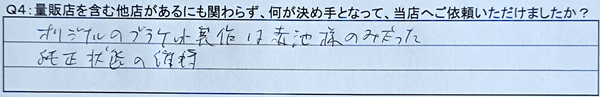 Q4：量販店を含む他店があるにも関わらず、何が決め手となって、当店へご依頼いただけましたか？
オリジナルのブラケット製作は赤池様のみだった
純正状態の維持